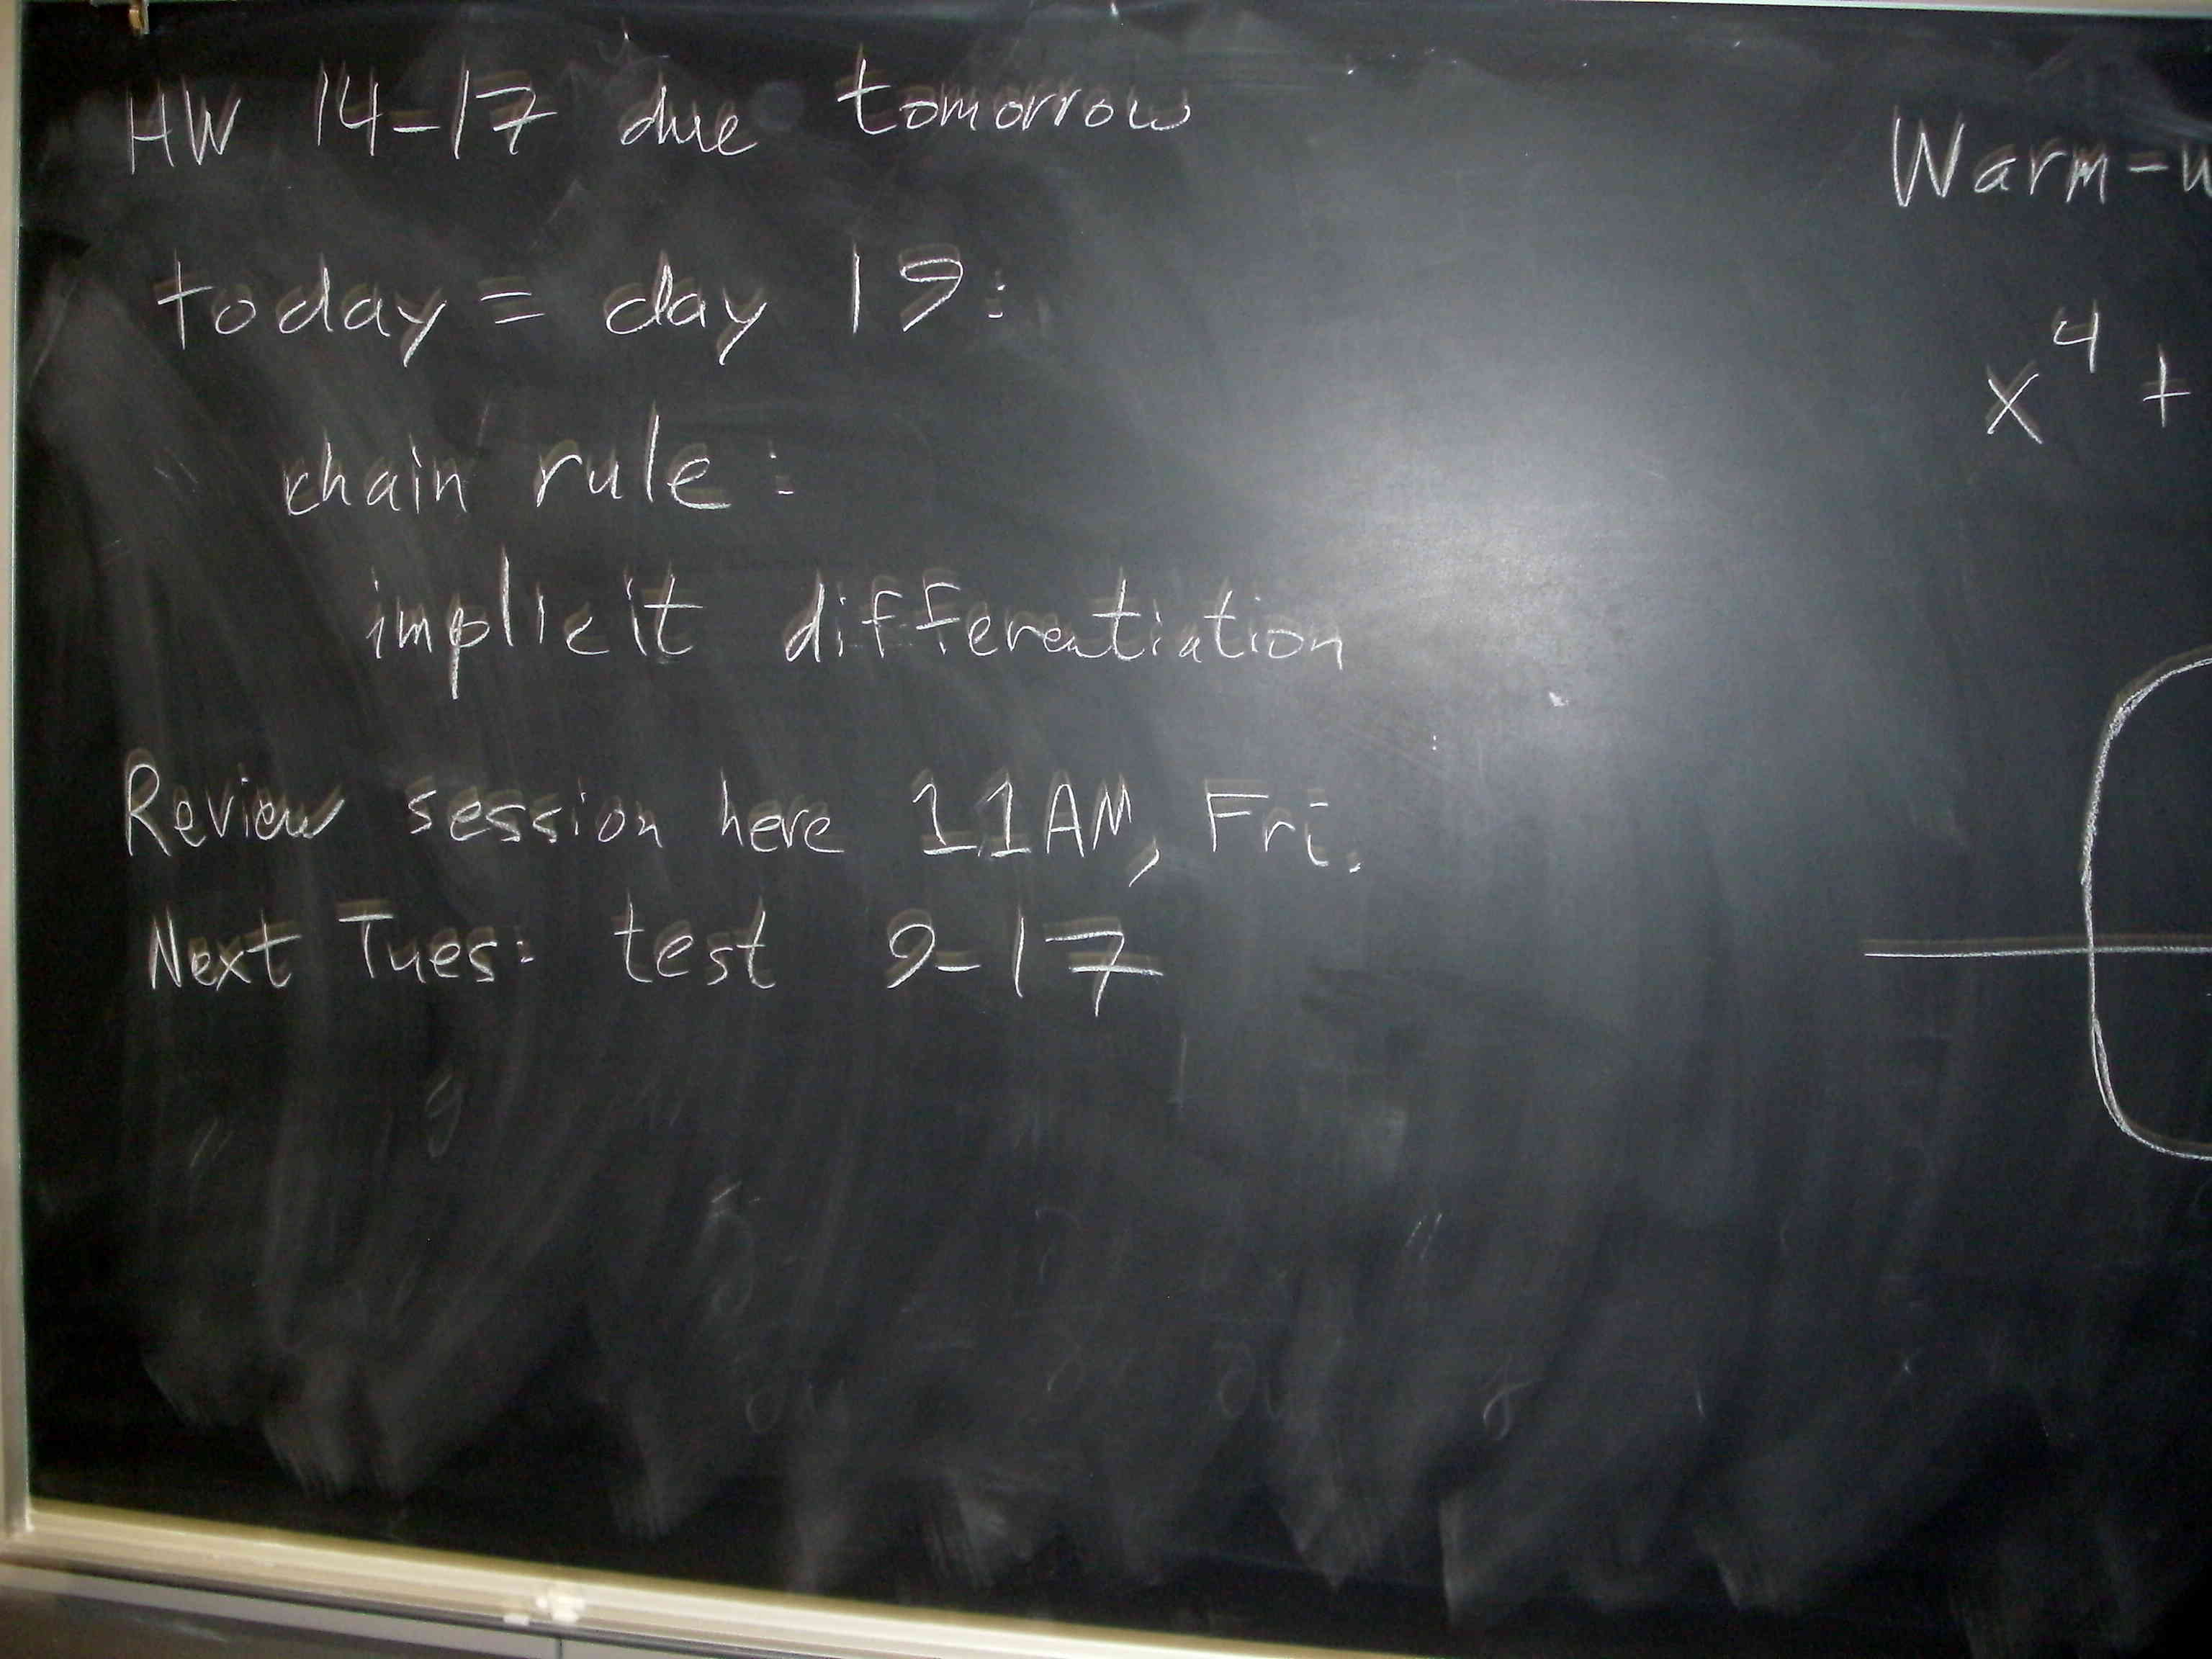 HW 14-17 due tomorrow
today = day 19:
chain rule:
implicit differentiation
Review session here 11AM, Fri.
Next Tues: test 9-17
Warm-u
x⁴ +